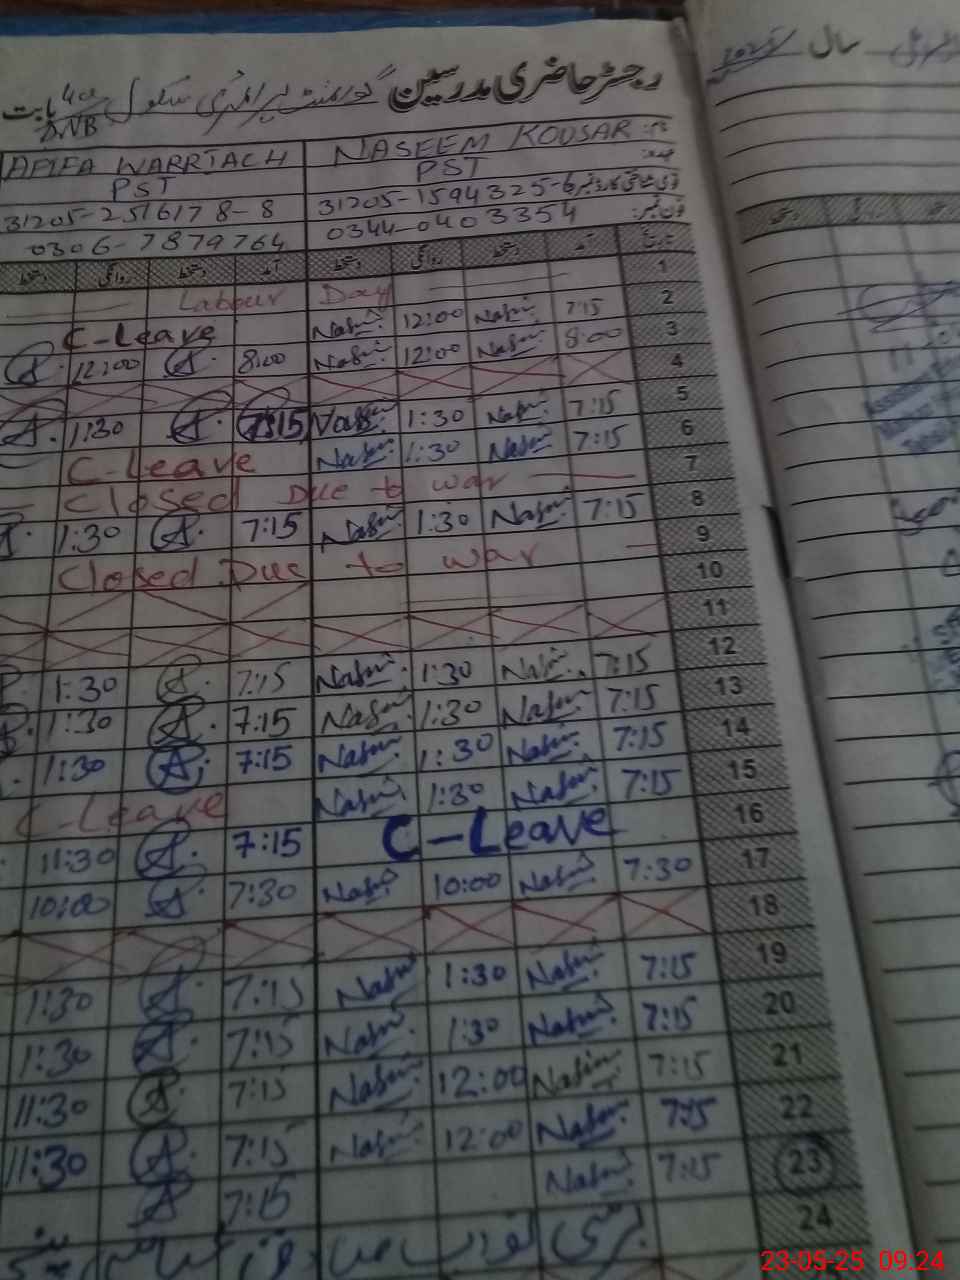 رجسٹر حاضری مدرسین گورنمنٹ پرائمری سکول 4a DNB بابت
سال 2025
نام: NASEEM KOUSAR AFIFA WARRIACH
عہدہ: PST PST
قومی شناختی کارڈ نمبر: 31205-1594325-6 31205-2516178-8
فون نمبر: 0344-0403354 0306-7879764
تاریخ آمد دستخط روانگی دستخط آمد دستخط روانگی دستخط
1 Labour Day
2 7:15 Nasim 12:00 Nasim C-Leave
3 8:00 Nasim 12:00 Nasim 8:00 A. 12:00 A.
4
5 7:15 Nasim 1:30 Nasim 7:15 A. 1:30 A.
6 7:15 Nasim 1:30 Nasim C-Leave
7 Closed Due to war
8 7:15 Nasim 1:30 Nasim 7:15 A. 1:30
9 Closed Due to war
10
11
12 7:15 Nasim 1:30 Nasim 7:15 A. 1:30
13 7:15 Nasim 1:30 Nasim 7:15 A. 1:30
14 7:15 Nasim 1:30 Nasim 7:15 A. 1:30
15 7:15 Nasim 1:30 Nasim C-Leave
16 C-Leave 7:15 A. 11:30
17 7:30 Nasim 10:00 Nasim 7:30 A. 10:00
18
19 7:15 Nasim 1:30 Nasim 7:15 A. 1:30
20 7:15 Nasim 1:30 Nasim 7:15 A. 1:30
21 7:15 Nasim 12:00 Nasim 7:15 A. 11:30
22 7:15 Nasim 12:00 Nasim 7:15 A. 11:30
23 7:15 Nasim 7:15 A.
24
23-05-25 09:24